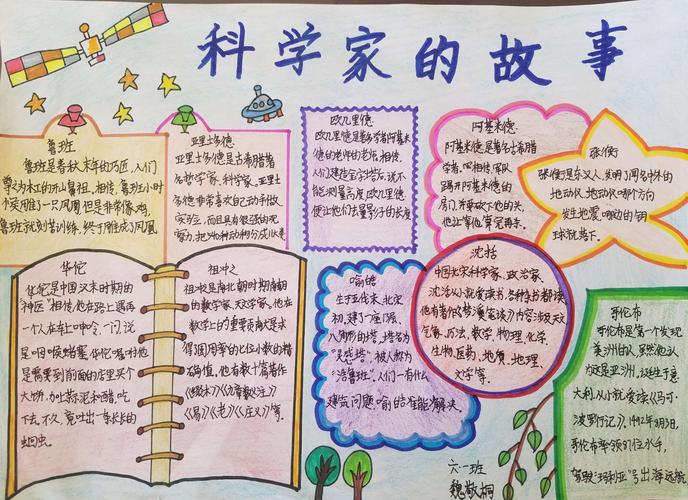 科学家的故事
鲁班
鲁班是春秋末年的巧匠,人们
尊为木工的开山鼻祖,相传,鲁班小时
个奕雕了一只凤凰,但是非常像鸡,
鲁班就刻苦训练,终于雕成了凤凰
亚里士多德
亚里士多德是古希腊著
名哲学家、科学家。亚里士
多德非常喜欢自己动手做
实验,而且有很强的观
察力,把540种动物分成
欧几里德
欧几里德是数学者阿基米
德的老师的老师,相传,
人们建造金字塔,说不
能测量高度,欧几里德
便让他们去量影子的长度
阿基米德
阿基米德是著名古希腊
学者,四相传,军队
踢开阿基米德的
房门,并要砍下他的头,
他让等他算完再杀。
张衡
张衡是东汉人,发明了闻名中外的
地动仪,地动仪哪个方向
发生地震,哪边的铜
球就落下。
华佗
华佗是中国汉末时期的
“神医”相传,他在路上遇一
一个人在车上呻吟,一问,说
是咽喉堵塞,华佗嘱咐他
是需要到前面的店里买个
大饼,加上蒜泥和醋,吃
下去,不久,竟吐出一条长长的
蛔虫。
祖冲之
祖冲是南北朝时期南朝
的数学家、天文学家,他在
数学上的重要贡献是求
得圆周率的七位小数的精
确值,他有数十篇著作
《缀术》《九章数义注》
《易》《老》《庄义》等。
喻皓
生于五代末,北宋
初,建了一座8层、
八角形的塔,塔名为
“灵感塔”,被人歌为
“活鲁班”。人们一有什么
建筑问题,喻皓准能解决。
沈括
中国北宋科学家、政治家,
沈括从小就爱读书,各种杂书都读,
他有著作《梦溪笔谈》内容涉及天文
气象、历法、数学、物理、化学、
生物、医药、地质、地理、
文学等。
哥伦布
哥伦布是第一个发现
美洲的人,虽然他认
为这是亚洲,这诞生于意
大利,从小就爱读《马可·
波罗行记》,1492年8月3日,
哥伦布率领87位水手,
驾驶“玛利亚”号出海远航
六一班
魏敬桐